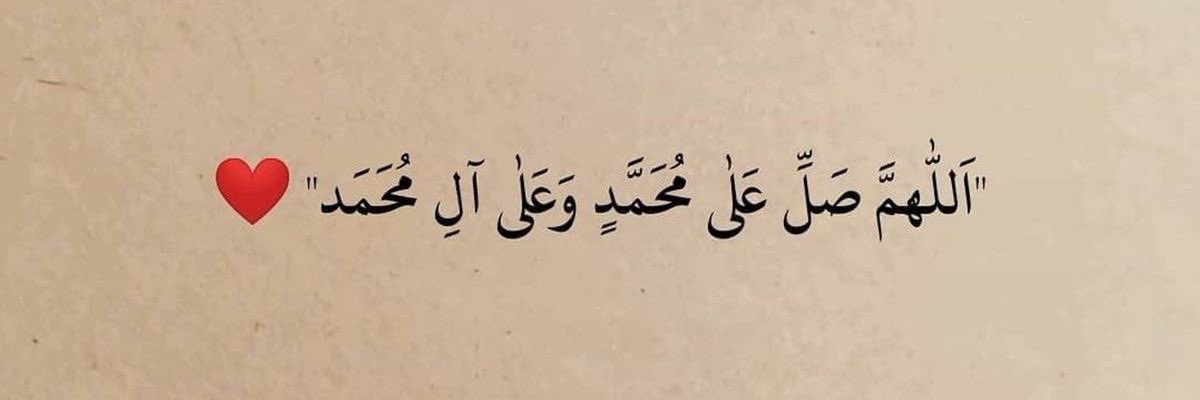 "اَللّٰهمَّ صَلِّ عَلٰى مُحَمَّدٍ وَعَلٰى آلِ مُحَمَد" ❤️